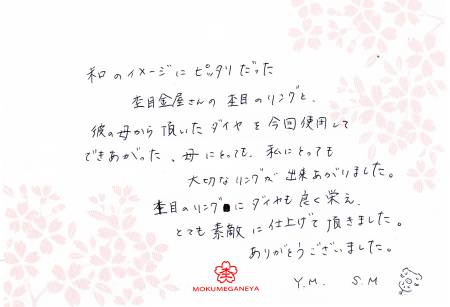 和のイメージにピッタリだった
杢目金屋さんの杢目のリングと、
彼の母から頂いたダイヤを今回使用して
できあがった、母にとっても、私にとっても
大切なリングが出来あがりました。
杢目のリングにダイヤも良く栄え、
とても素敵に仕上げて頂きました。
ありがとうございました。
Y.M. S.M
MOKUMEGANEYA